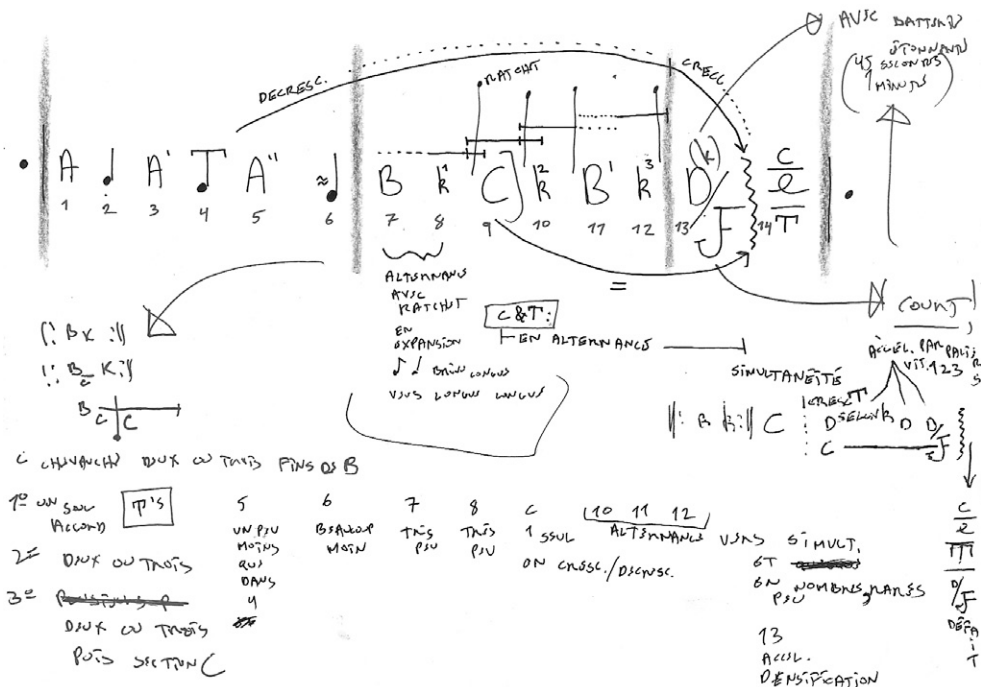 AVEC BATTERIE
ÉTONNANTE
(45 SECONDES
1 MINUTE)
DECRESC.
RATCHET
CRESC.
A A' T A'' B k¹ C k² B' k³ D(k)/J C/e/T
1 2 3 4 5 6 7 8 9 10 11 12 13 14
ALTERNANCE
AVEC
RATCHET
EN
EXPANSION
BRÈVE LONGUE
VERS LONGUE LONGUE
C & T:
EN ALTERNANCE
=
SIMULTANÉITÉ
(COUNT)
ACCÉL. PAR PALIERS
VIT. 1 2 3
|: B K :|
|: B C K :|
B C C
||: B k :|| C
CRESC T
D D D/J
C
C CHEVAUCHE DEUX OU TROIS FINS DE B
1º UN SEUL
ACCORD
T'S
2º DEUX OU TROIS
3º
DEUX OU TROIS
PUIS SECTION C
5
UN PEU
MOINS
QUE
DANS
4
6
BEAUCOUP
MOIN
7
TRÈS
PEU
8
TRÈS
PEU
C
1 SEUL
EN CRESC./DECRESC.
10 11 12
ALTERNANCE VERS SIMULT.
ET
EN NOMBRES RARES
PEU
13
ACCEL.
DENSIFICATION
C
e
T
D/J
DÉFAIT